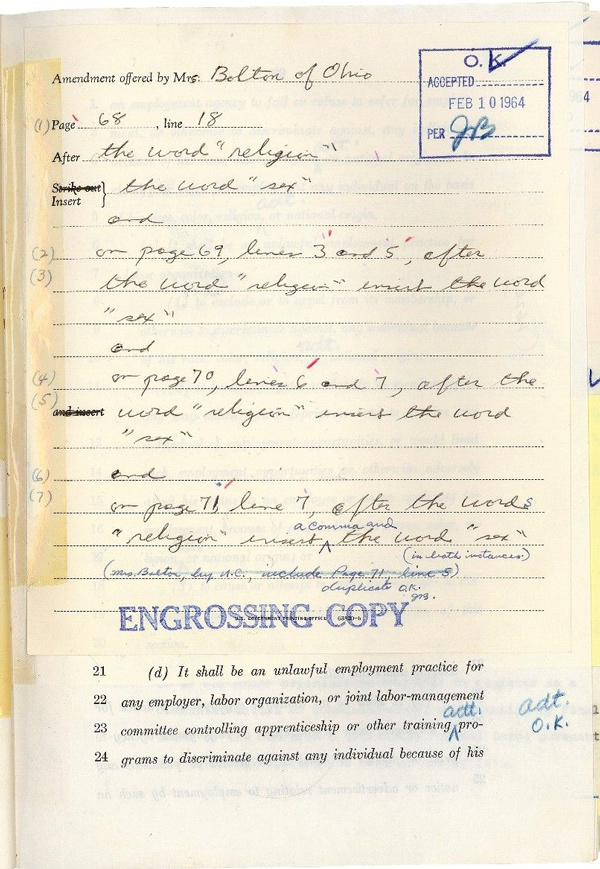 Amendment offered by Mrs. Bolton of Ohio
O.K.
ACCEPTED
FEB 10 1964
PER JB
(1) Page 68, line 18
After the word "religion"
Strike out
Insert } the word "sex"
and
(2) on page 69, lines 3 and 5, after
(3) the word "religion" insert the word
"sex"
and
(4) on page 70, lines 6 and 7, after the
(5)
and insert word "religion" insert the word
"sex"
(6) and
(7) on page 71, line 7, after the words
a comma and
"religion" insert ^ the word "sex"
(in both instances)
(Mrs. Bolton, by U.C., include Page 71 line 5)
duplicate O.K.
JB.
ENGROSSING COPY
U.S. GOVERNMENT PRINTING OFFICE
21 (d) It shall be an unlawful employment practice for
22 any employer, labor organization, or joint labor-management
adt.
23 committee controlling apprenticeship or other training ^ pro-
adt.
O.K.
24 grams to discriminate against any individual because of his